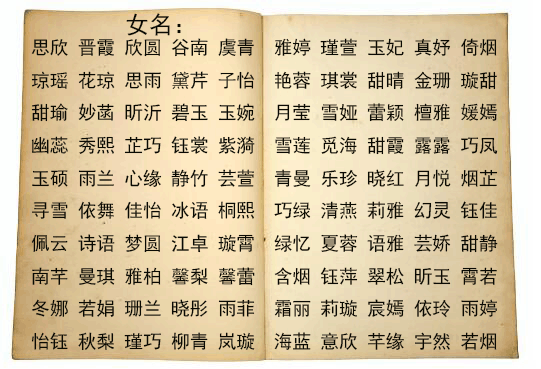 女名：
思欣 晋霞 欣圆 谷南 虞青 雅婷 瑾萱 玉妃 真妤 倚烟
琼瑶 花琼 思雨 黛芹 子怡 艳蓉 琪裳 甜晴 金珊 璇甜
甜瑜 妙菡 昕沂 碧玉 玉婉 月莹 雪娅 蕾颖 檀雅 媛嫣
幽蕊 秀熙 芷巧 钰裳 紫漪 雪莲 觅海 甜霞 露露 巧凤
玉硕 雨兰 心缘 静竹 芸萱 青曼 乐珍 晓红 月悦 烟芷
寻雪 依舞 佳怡 冰语 桐熙 巧绿 清燕 莉雅 幻灵 钰佳
佩云 诗语 梦圆 江卓 璇霄 绿忆 夏蓉 语雅 芸娇 甜静
南芊 曼琪 雅柏 馨梨 馨蕾 含烟 钰萍 翠松 昕玉 霄若
冬娜 若娟 珊兰 晓彤 雨菲 霜丽 莉璇 宸嫣 依玲 雨婷
怡钰 秋梨 瑾巧 柳青 岚璇 海蓝 意欣 芊缘 宇然 若烟